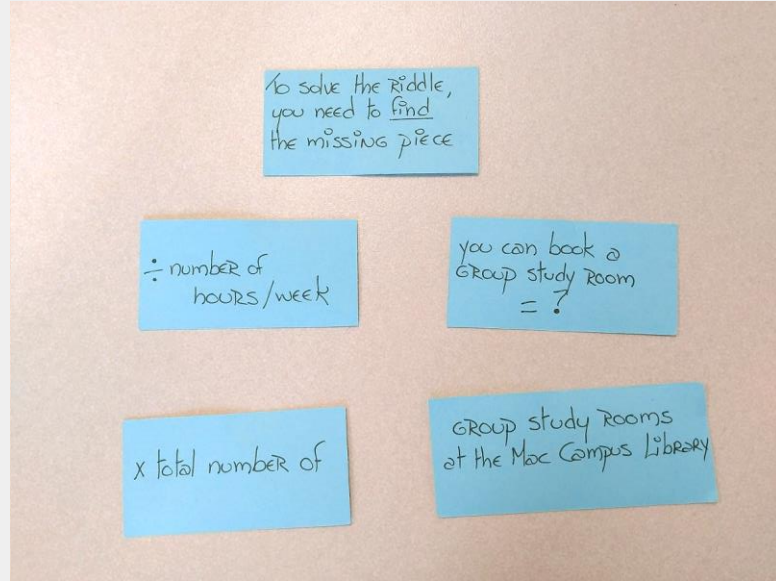 To solve the Riddle,
you need to find
the missing piece
÷ number of
hours/week
you can book a
Group study Room
= ?
x total number of
Group study Rooms
at the Mac Campus Library